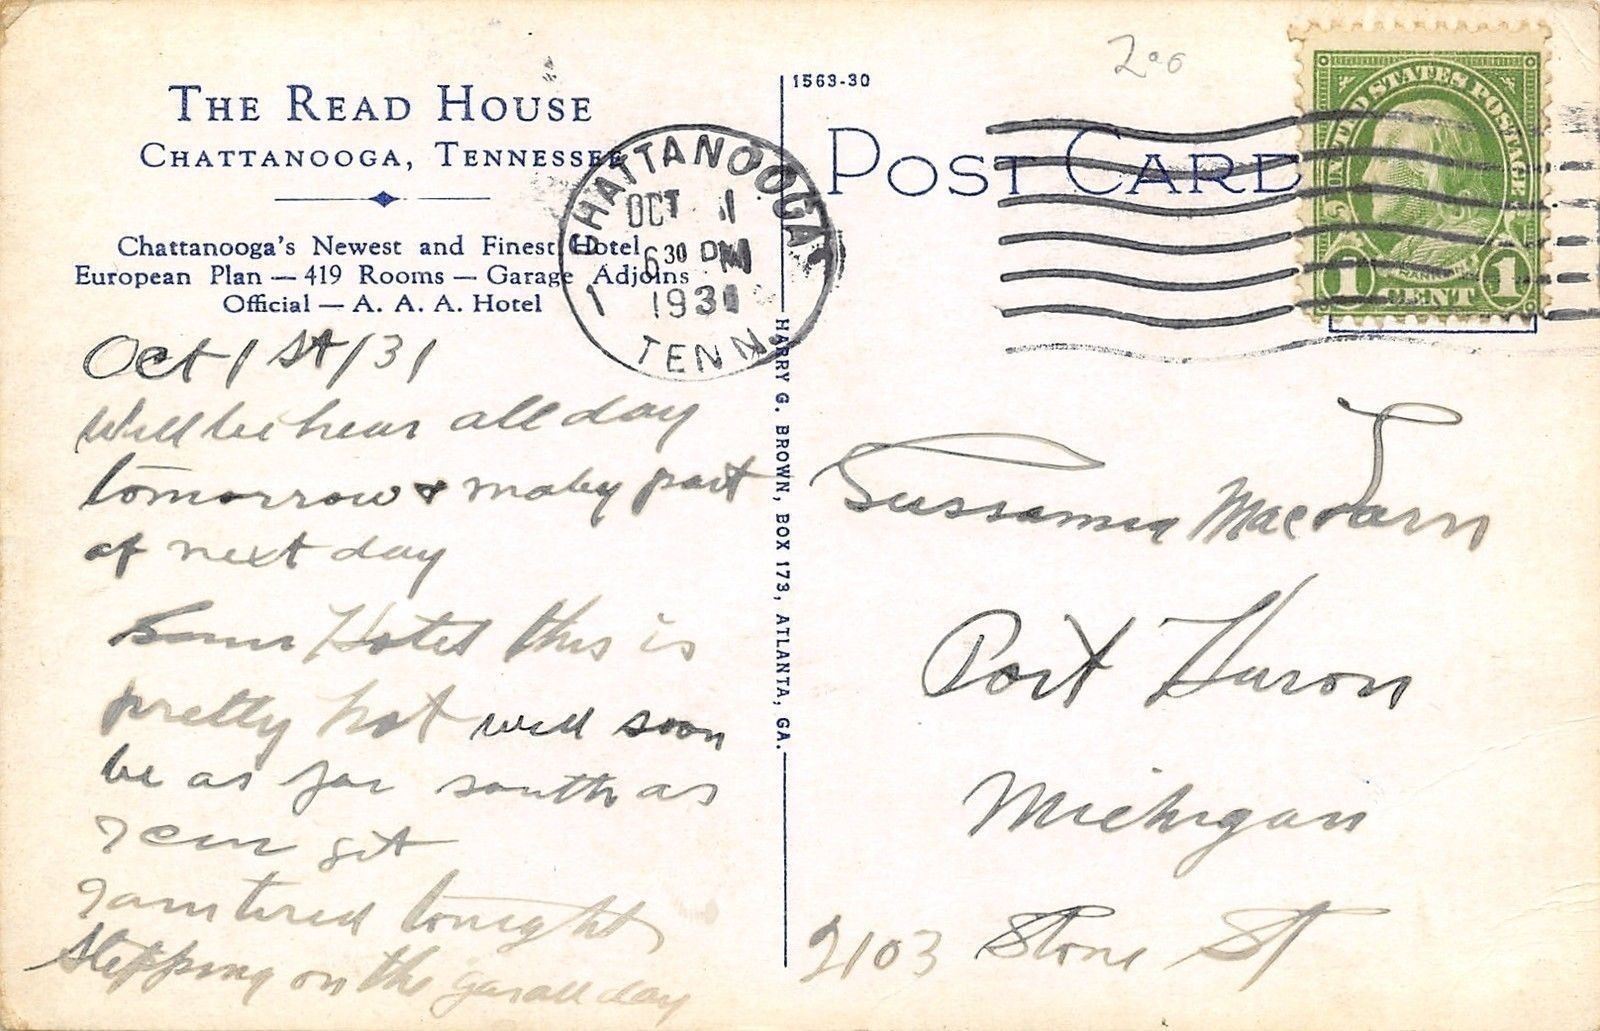 THE READ HOUSE
CHATTANOOGA, TENNESSEE
Chattanooga's Newest and Finest Hotel
European Plan — 419 Rooms — Garage Adjoins
Official — A. A. A. Hotel
Oct 1st/31
Will be hear all day
tomorrow & mabey part
of next day
Some Hotel this is
pretty hot will soon
be as far south as
I can get
I am tired tonight
stepping on the gas all day
CHATTANOOGA
OCT 1
6 30 PM
1931
1
TENN.
HARRY G. BROWN, BOX 173, ATLANTA, GA.
1563-30
POST CARD
200
UNITED STATES POSTAGE
1 CENT 1
Sussanna
Port Huron
Michigan
2103 Stone St